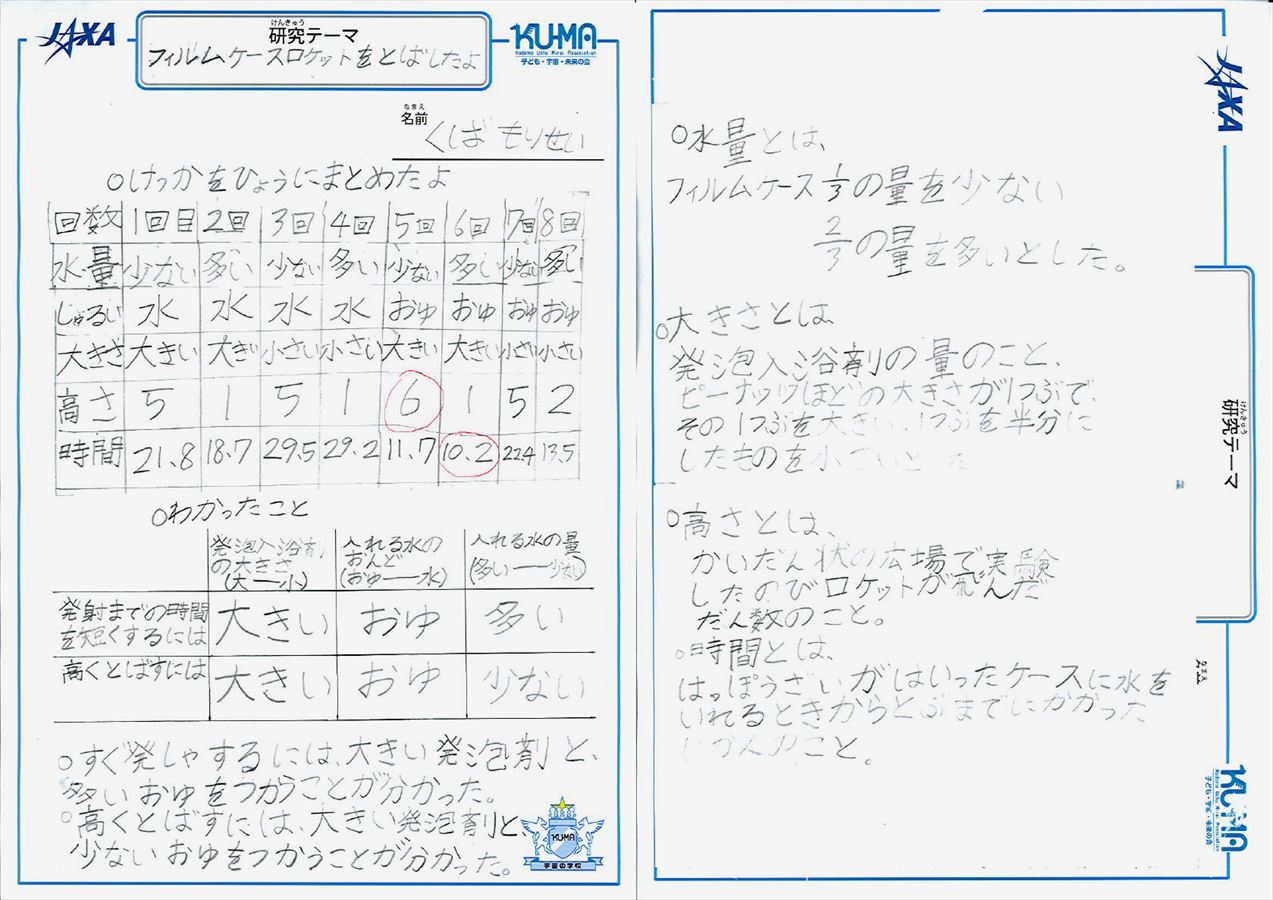 JAXA
けんきゅう
研究テーマ
フィルムケースロケットをとばしたよ
KU-MA
Kodomo Uchu Mirai Association
子ども・宇宙・未来の会
なまえ
名前
くしば もりせい
○けっかをひょうにまとめたよ
回数 1回目 2回 3回 4回 5回 6回 7回 8回
水量 少ない 多い 少ない 多い 少ない 多い 少ない 多い
しゅるい 水 水 水 水 おゆ おゆ おゆ おゆ
大きさ 大きい 大きい 小さい 小さい 大きい 大きい 小さい 小さい
高さ 5 1 5 1 6 1 5 2
時間 21.8 18.7 29.5 29.2 11.7 10.2 22.4 13.5
○わかったこと
発泡入浴剤の大きさ(大―小) 入れる水のおんど(おゆ―水) 入れる水の量(多い―少ない)
発射までの時間を短くするには 大きい おゆ 多い
高くとばすには 大きい おゆ 少ない
○すぐ発しゃするには、大きい発泡剤と、
多いおゆをつかうことが分かった。
○高くとばすには、大きい発泡剤と、
少ないおゆをつかうことが分かった。
KUMA
宇宙の学校
○水量とは、
フィルムケース1/3の量を少ない
2/3の量を多いとした。
○大きさとは
発泡入浴剤の量のこと、
ピーナッツほどの大きさが1つぶで、
その1つぶを大きい、1つぶを半分に
したものを小さいとした
○高さとは、
かいだん状の広場で実験
したのでロケットが飛んだ
だん数のこと。
○時間とは、
はっぽうざいがはいったケースに水を
いれるときからとぶまでにかかった
じかんのこと。
JAXA
けんきゅう
研究テーマ
なまえ
KU-MA
Kodomo Uchu Mirai Association
子ども・宇宙・未来の会